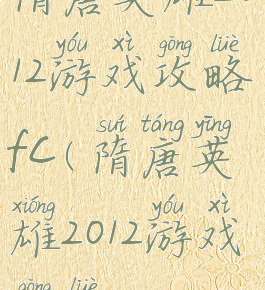 隋唐英雄20
yóu xì gōng lüè
12游戏攻略
suí táng yīng
fc(隋唐英
xióng yóu xì
雄2012游戏
gōng lüè